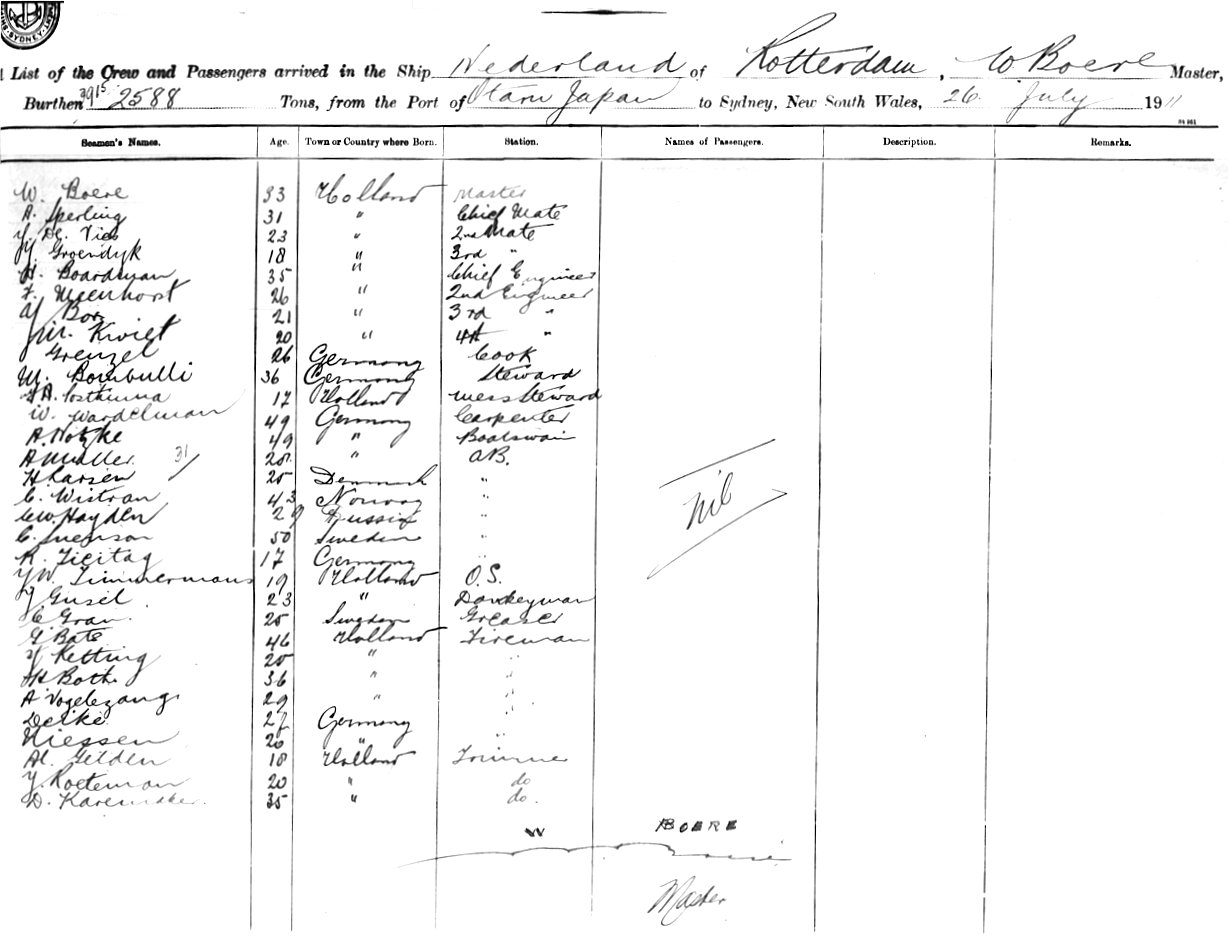 SYDNEY
List of the Crew and Passengers arrived in the Ship Nederland of Rotterdam, W Boere Master,
Burthen 3915 2588 Tons, from the Port of Otaru Japan to Sydney, New South Wales, 26 July 1911
Seamen's Names. Age. Town or Country where Born. Station. Names of Passengers. Description. Remarks.
W. Boere 33 Holland Master
A. Sperling 31 " Chief Mate
De Vies 23 " 2nd Mate
Groendyk 18 " 3rd "
H. Boardman 35 " Chief Engineer
F. Meenhorst 26 " 2nd Engineer
Bor 21 " 3rd "
Kwiet 20 " 4th "
Grenzel 26 Germany Cook
M. Bombulli 36 Germany Steward
Posthuma 17 Holland mess Steward
W. Wardelman 49 Germany Carpenter
A. Notzke 49 " Boatswain
A Muller 31 " AB.
H Larsen 25 Denmark "
C. Wistran 43 Norway "
CW. Hayden 29 Russia "
C. Svenson 50 Sweden "
R. Freitag 17 Germany "
Timmermans 19 Holland O.S.
Gusel 23 " Donkeyman
C Gran 25 Sweden Greaser
G Bate 46 Holland Fireman
Ketting 25 " "
Both 36 " "
A Vogelezang 29 " "
Deike 27 Germany "
Niessen 20 " "
Al. Gelden 18 Holland Trimmer
Y. Koeteman 20 " do
D. Karemaker 35 " do.
nil
W BOERE
Master